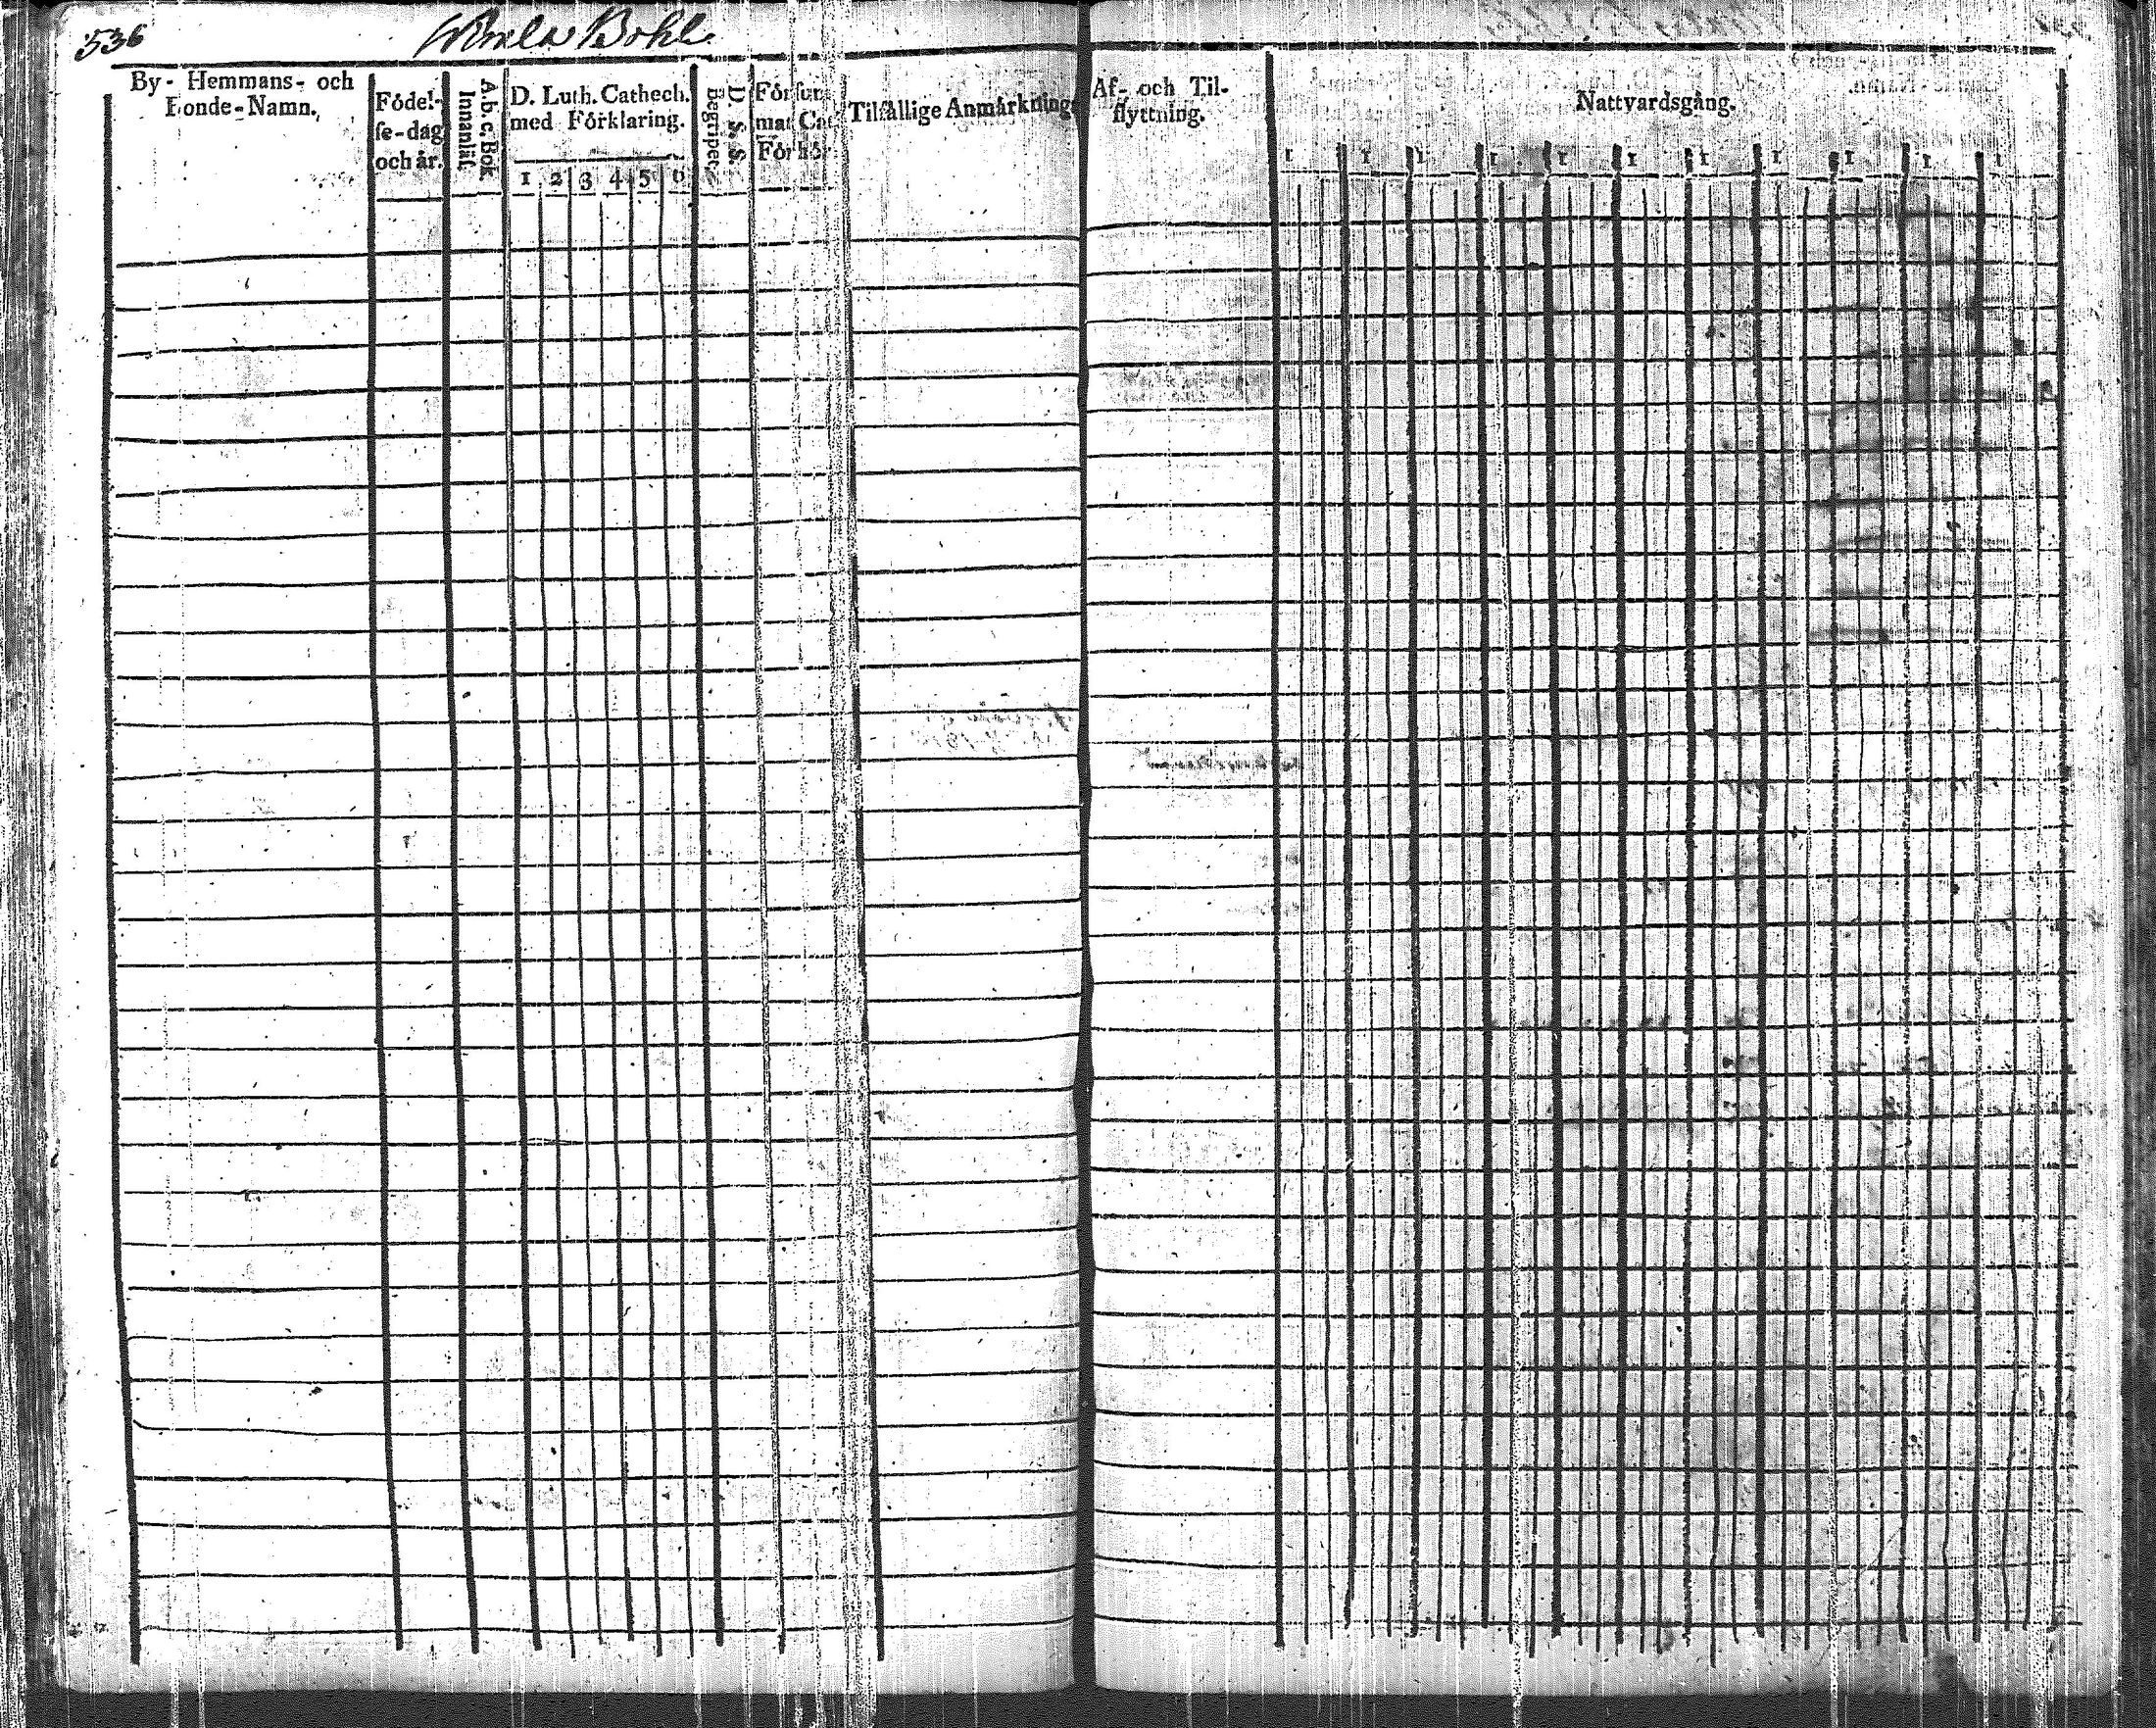 536
Bohl
By- Hemmans- och
Bonde-Namn.
Födel-
se-dag
och år.
A.b.c. Bok
Innanläs.
D. Luth. Cathech.
med Förklaring.
1 2 3 4 5 6
Begriper
D. S. S.
Förfum
mat Cat
Förhör
Tilfällige Anmärkning
Af- och Til-
flyttning.
Nattvardsgång.
1 1 1 1 1 1 1 1 1 1 1